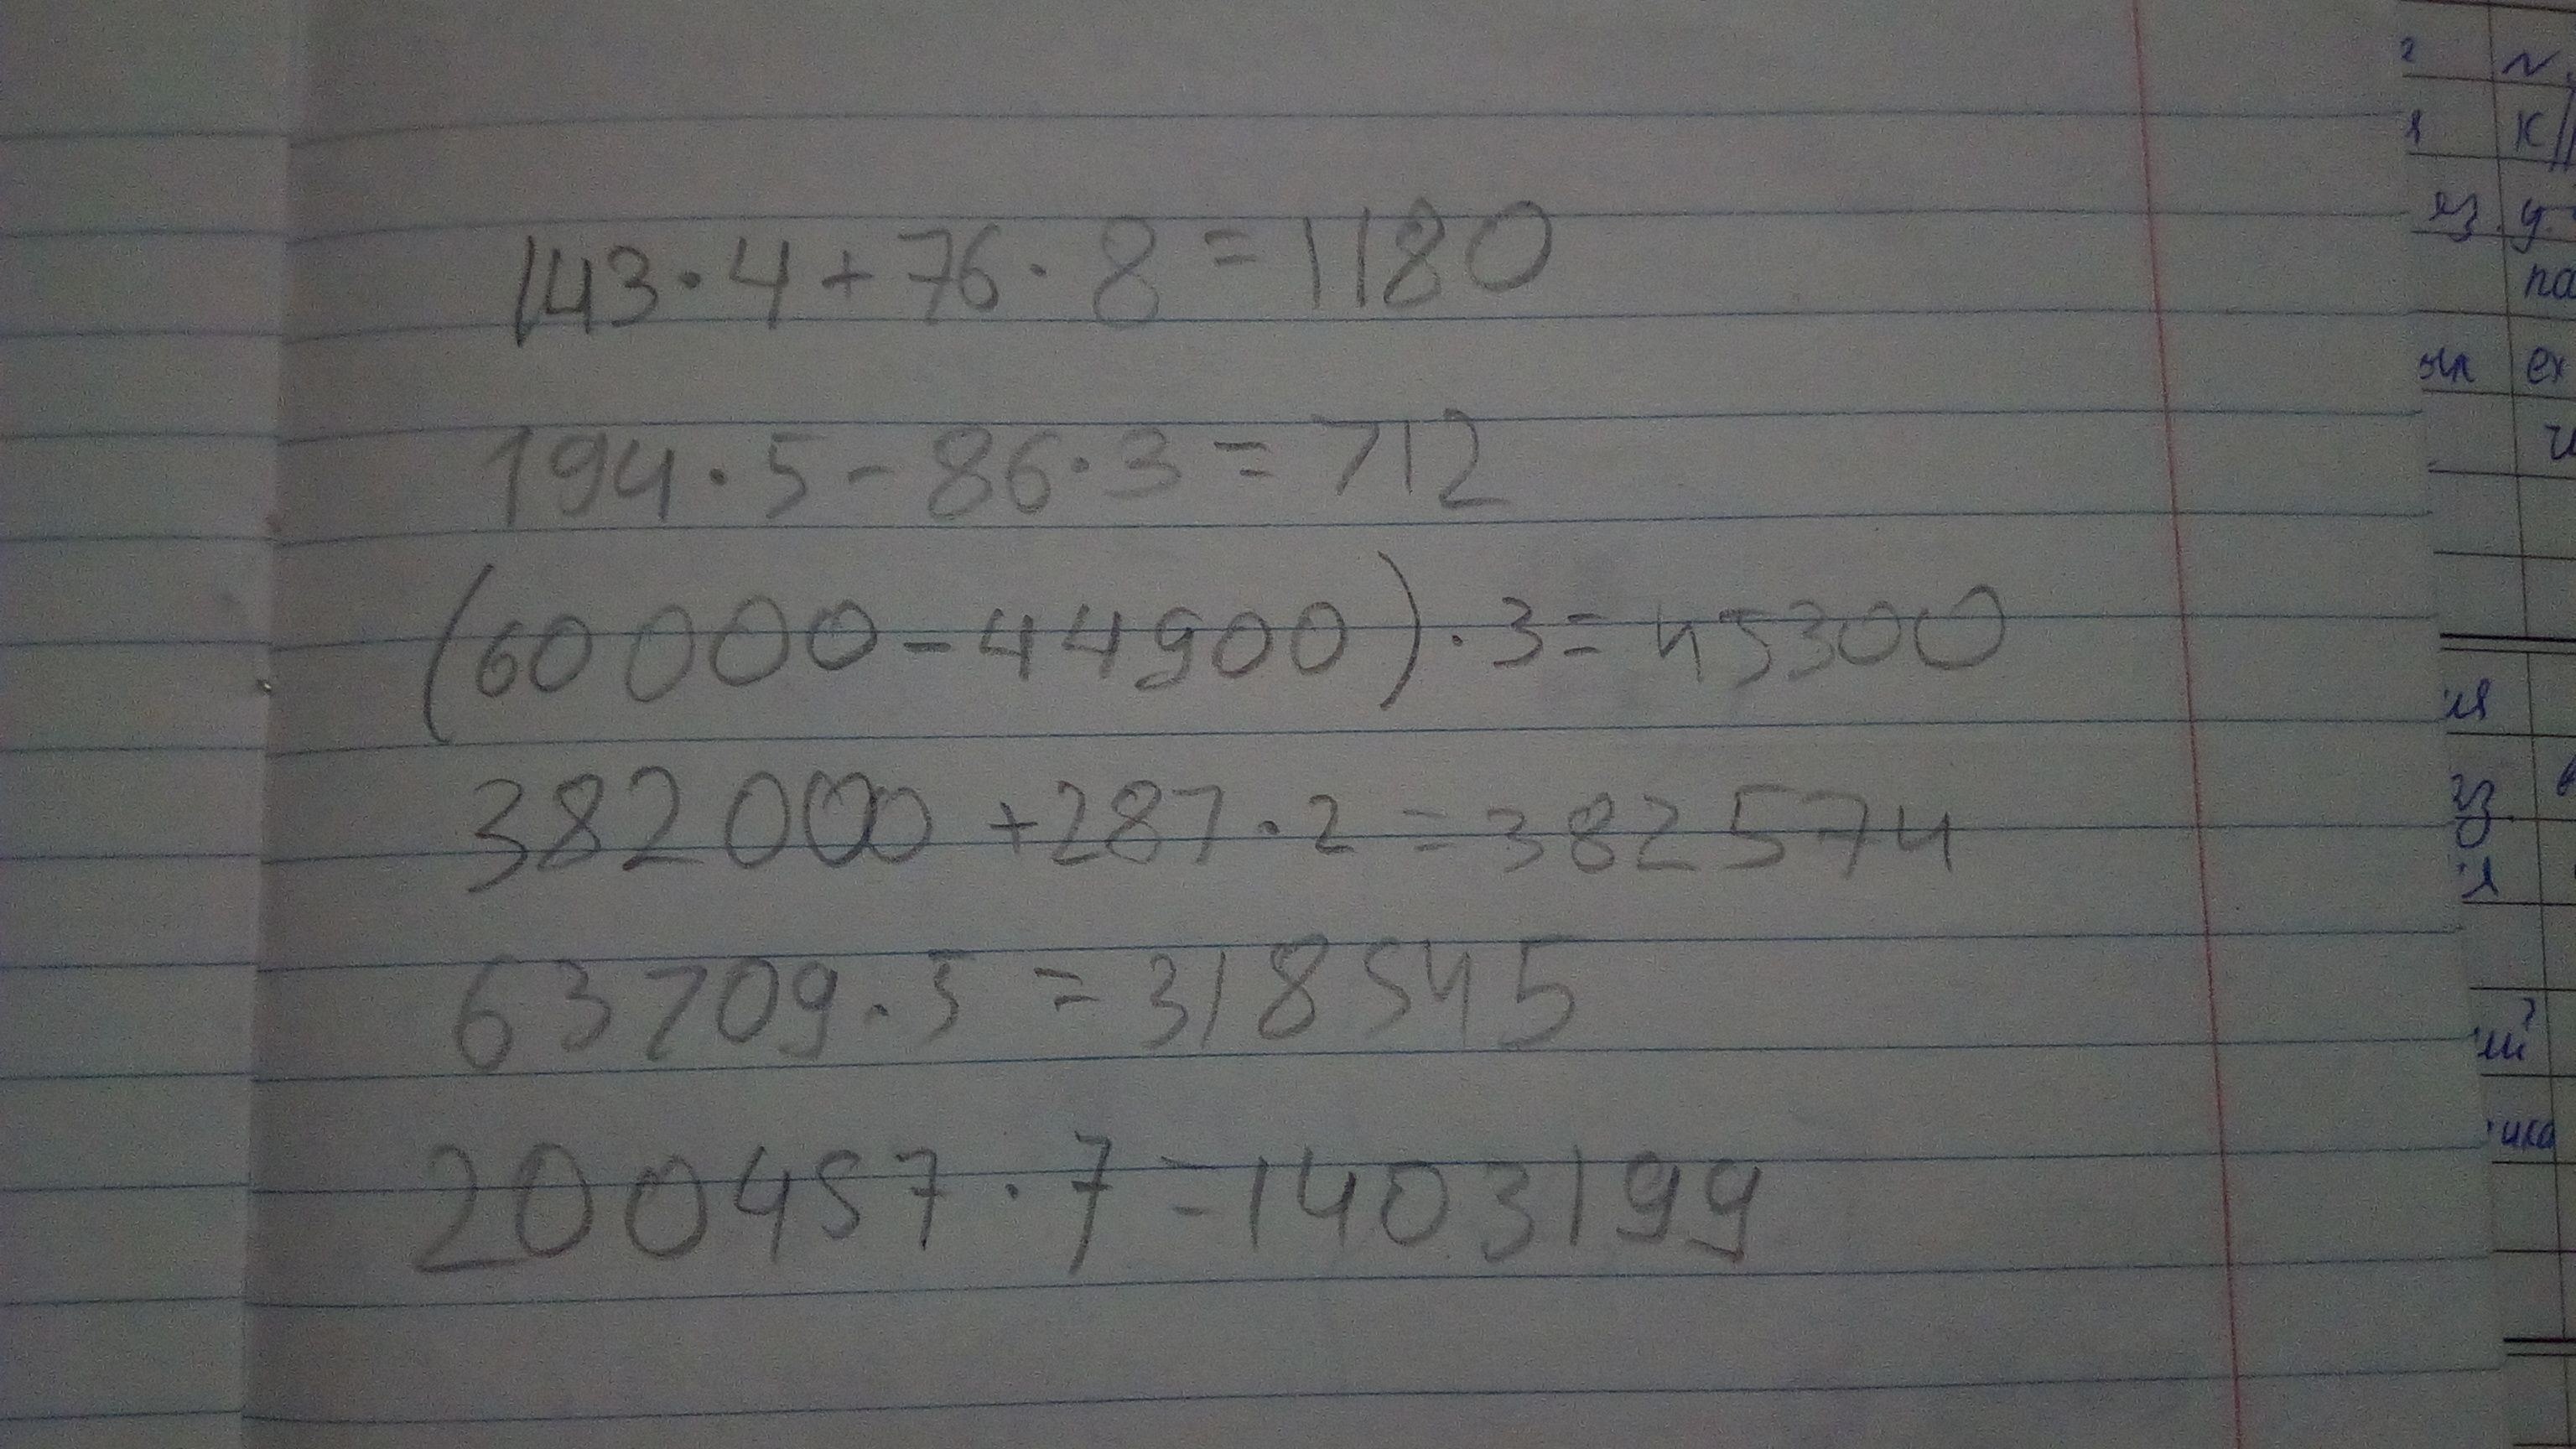 143·4+76·8=1180
194·5-86·3=712
(60000-44900)·3=45300
382000+287·2=382574
63709·5=318545
200457·7=1403199